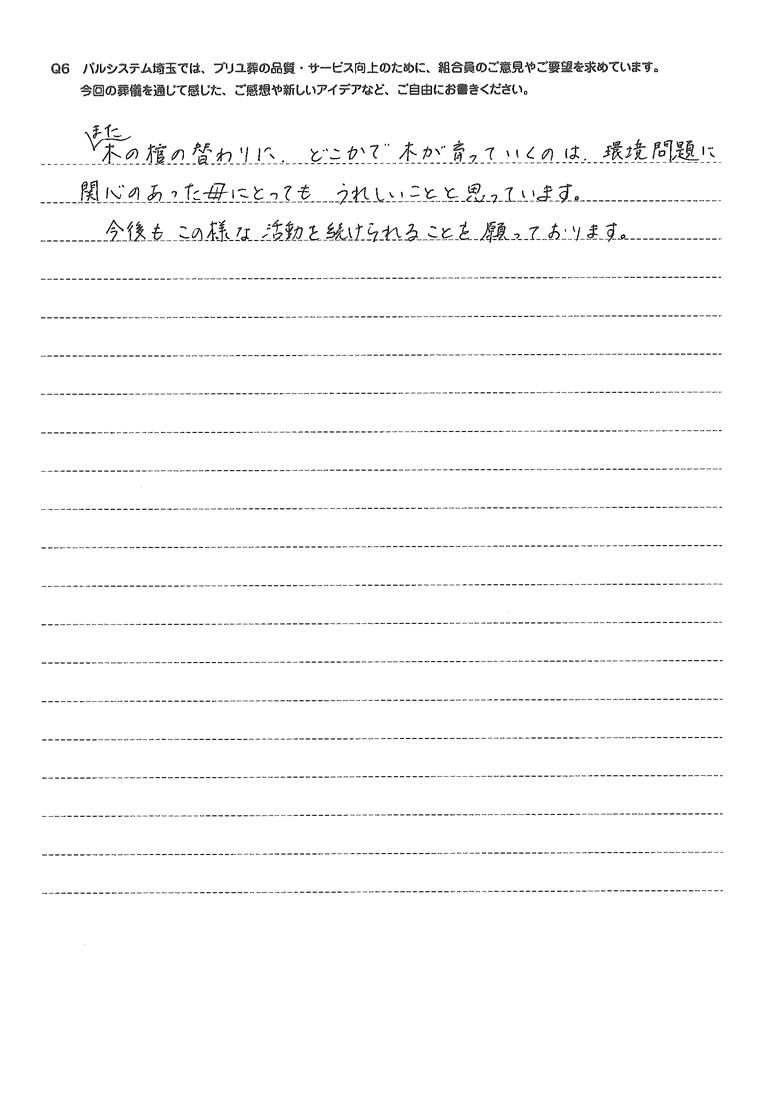 Q6 パルシステム埼玉では、プリエ葬の品質・サービス向上のために、組合員のご意見やご要望を求めています。
今回の葬儀を通じて感じた、ご感想や新しいアイデアなど、ご自由にお書きください。
また
木の棺の替わりに、どこかで木が育っていくのは、環境問題に
関心のあった母にとっても うれしいことと思っています。
今後も この様な 活動を続けられることを 願っております。